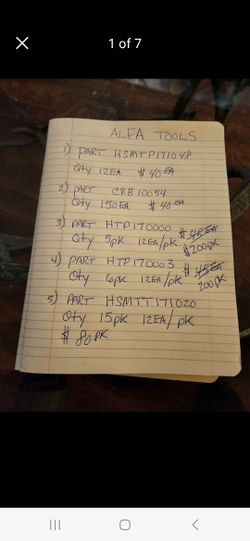 1 of 7
ALFA TOOLS
1) PART HSMTP171048
Qty 12EA $40 EA
2) PART CRB10054
Qty 150EA $40 EA
3) PART HTP170000 $45EA
Qty 5pk 12EA/pk $200pk
4) PART HTP170003 $45EA
Qty 6pk 12EA/pk 200pk
5) PART HSMTT171020
Qty 15pk 12EA/pk
$80pk